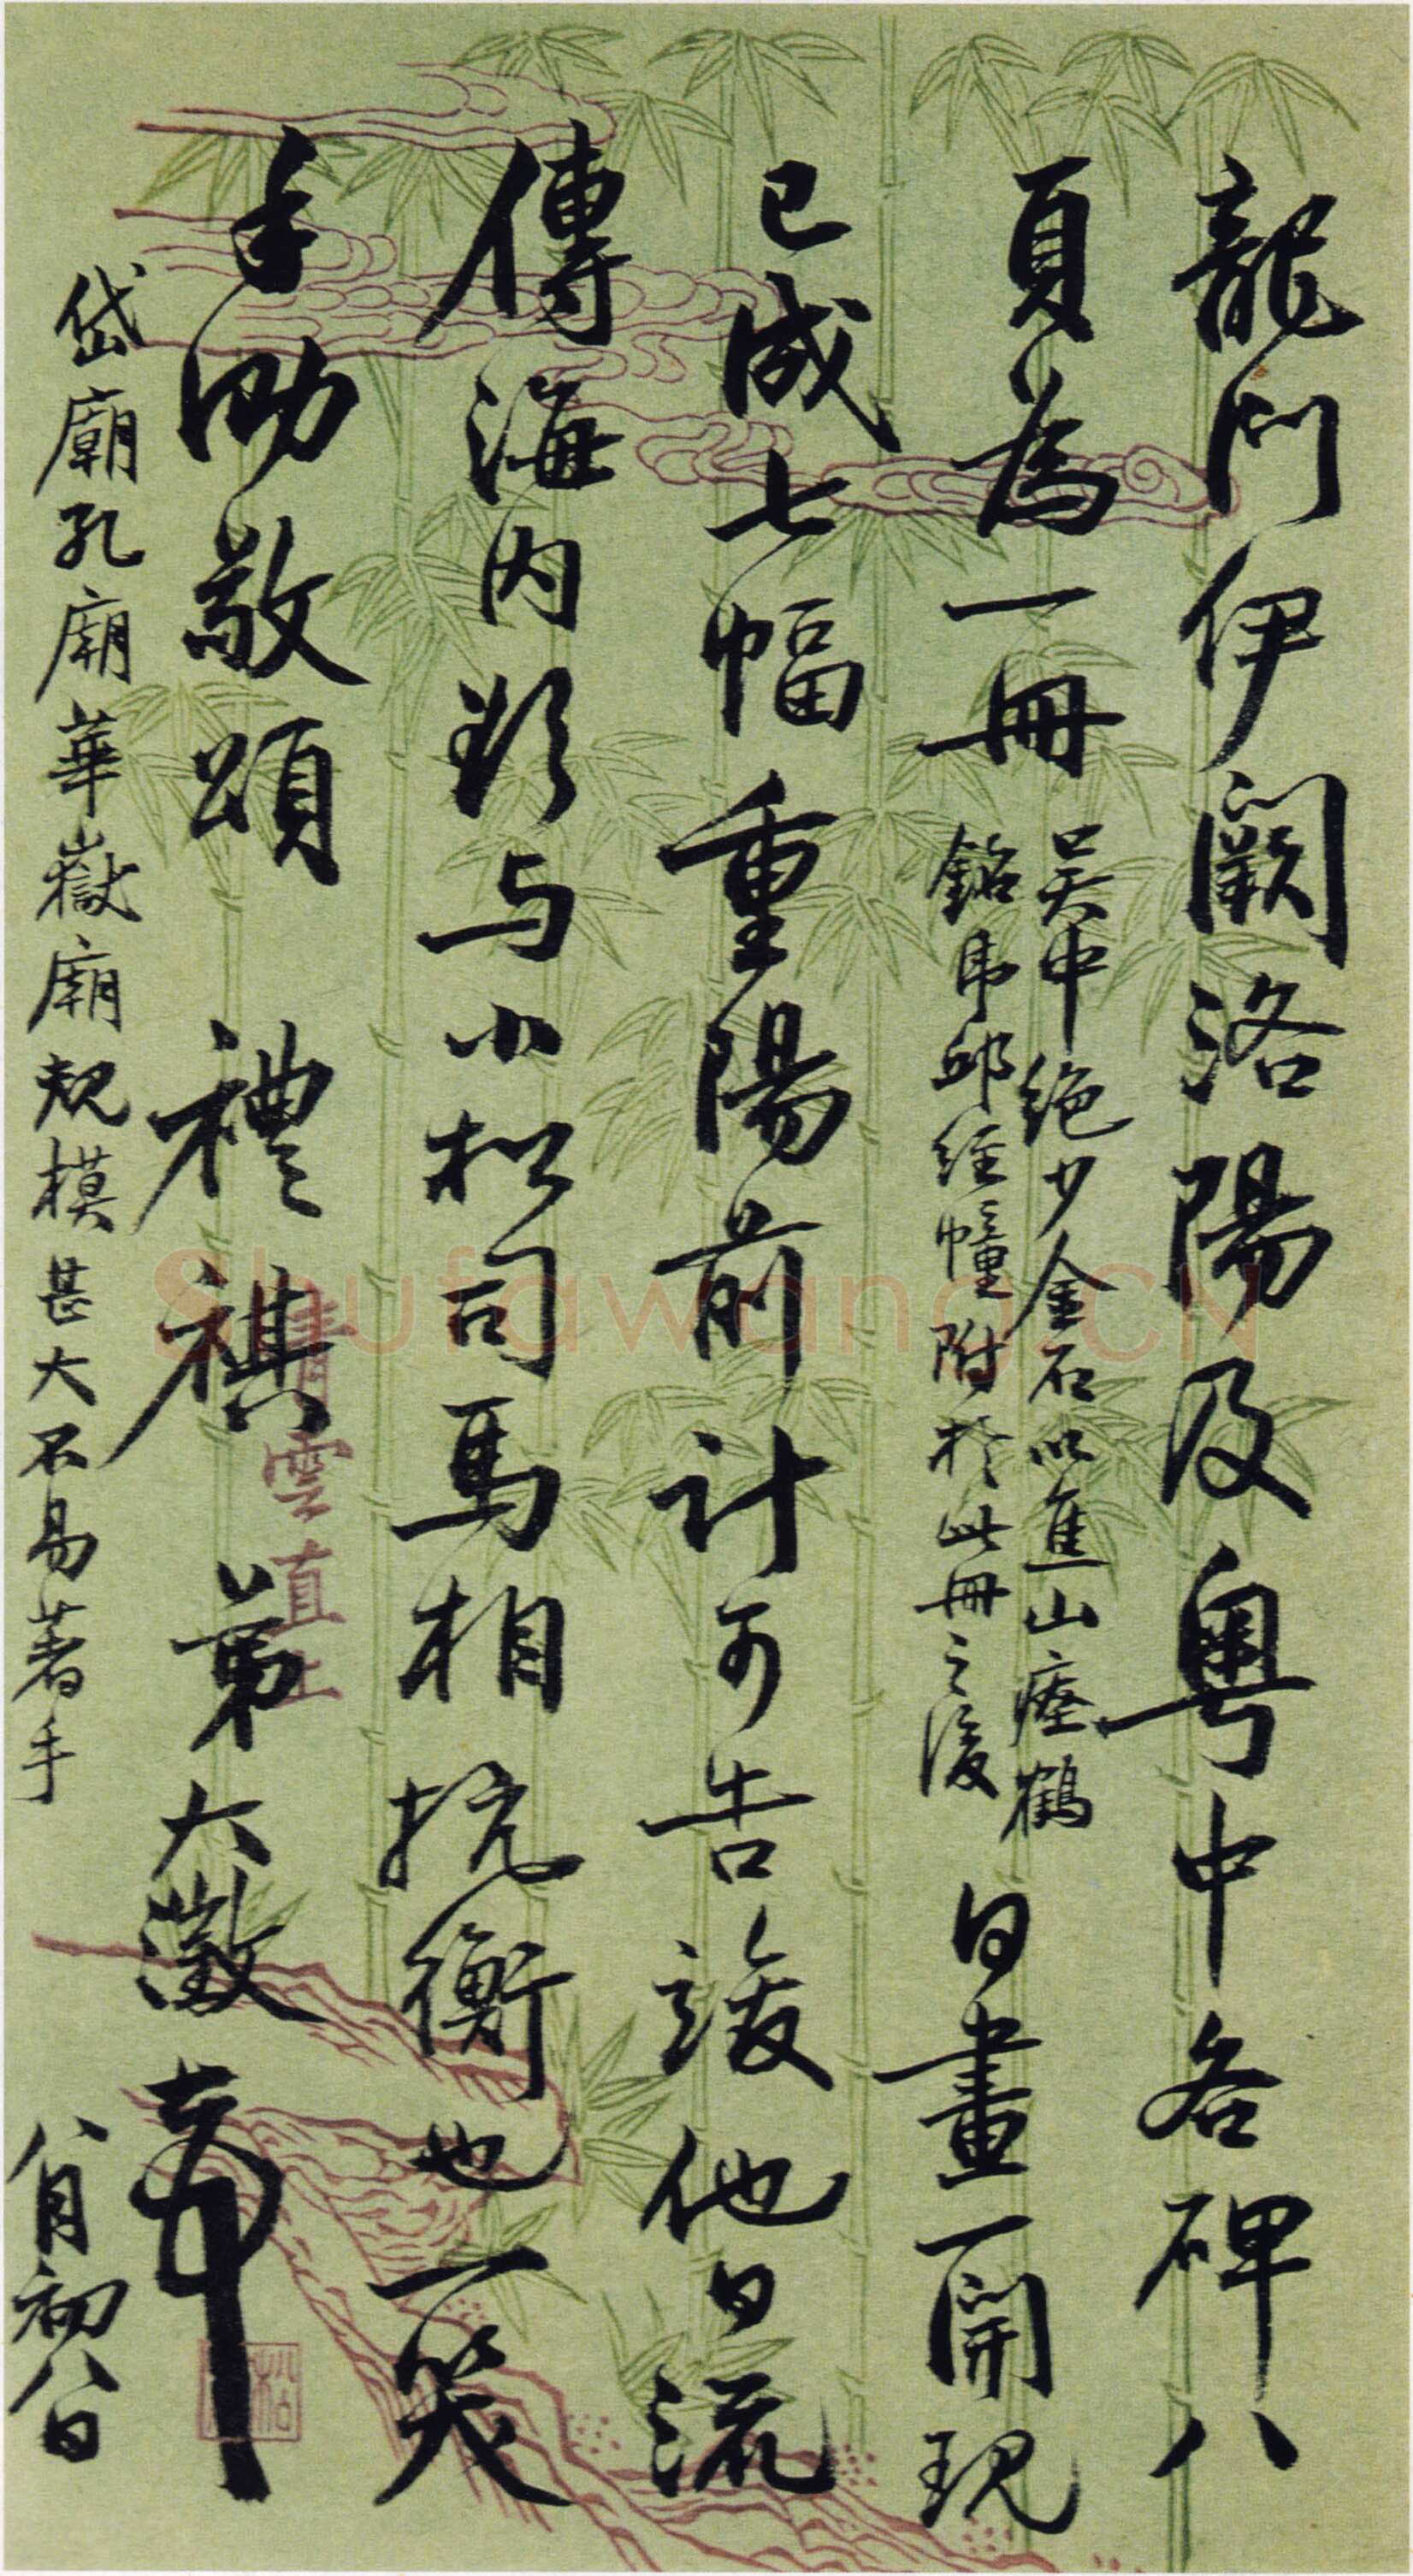 龍門伊闕洛陽及粵中各碑八
頁為一冊
吳中絕少金石以焦山瘞鶴
銘虎邱經幢附於此冊之後
日畫一開現
已成七幅重陽前計可告竣他日流
傳海內頗与小松司馬相抗衡也一笑
手泐敬頌
禮祺 弟大澂頓首
岱廟孔廟華嶽廟規模甚大不易著手
八月初八日
雲直上
Shufawang.CN